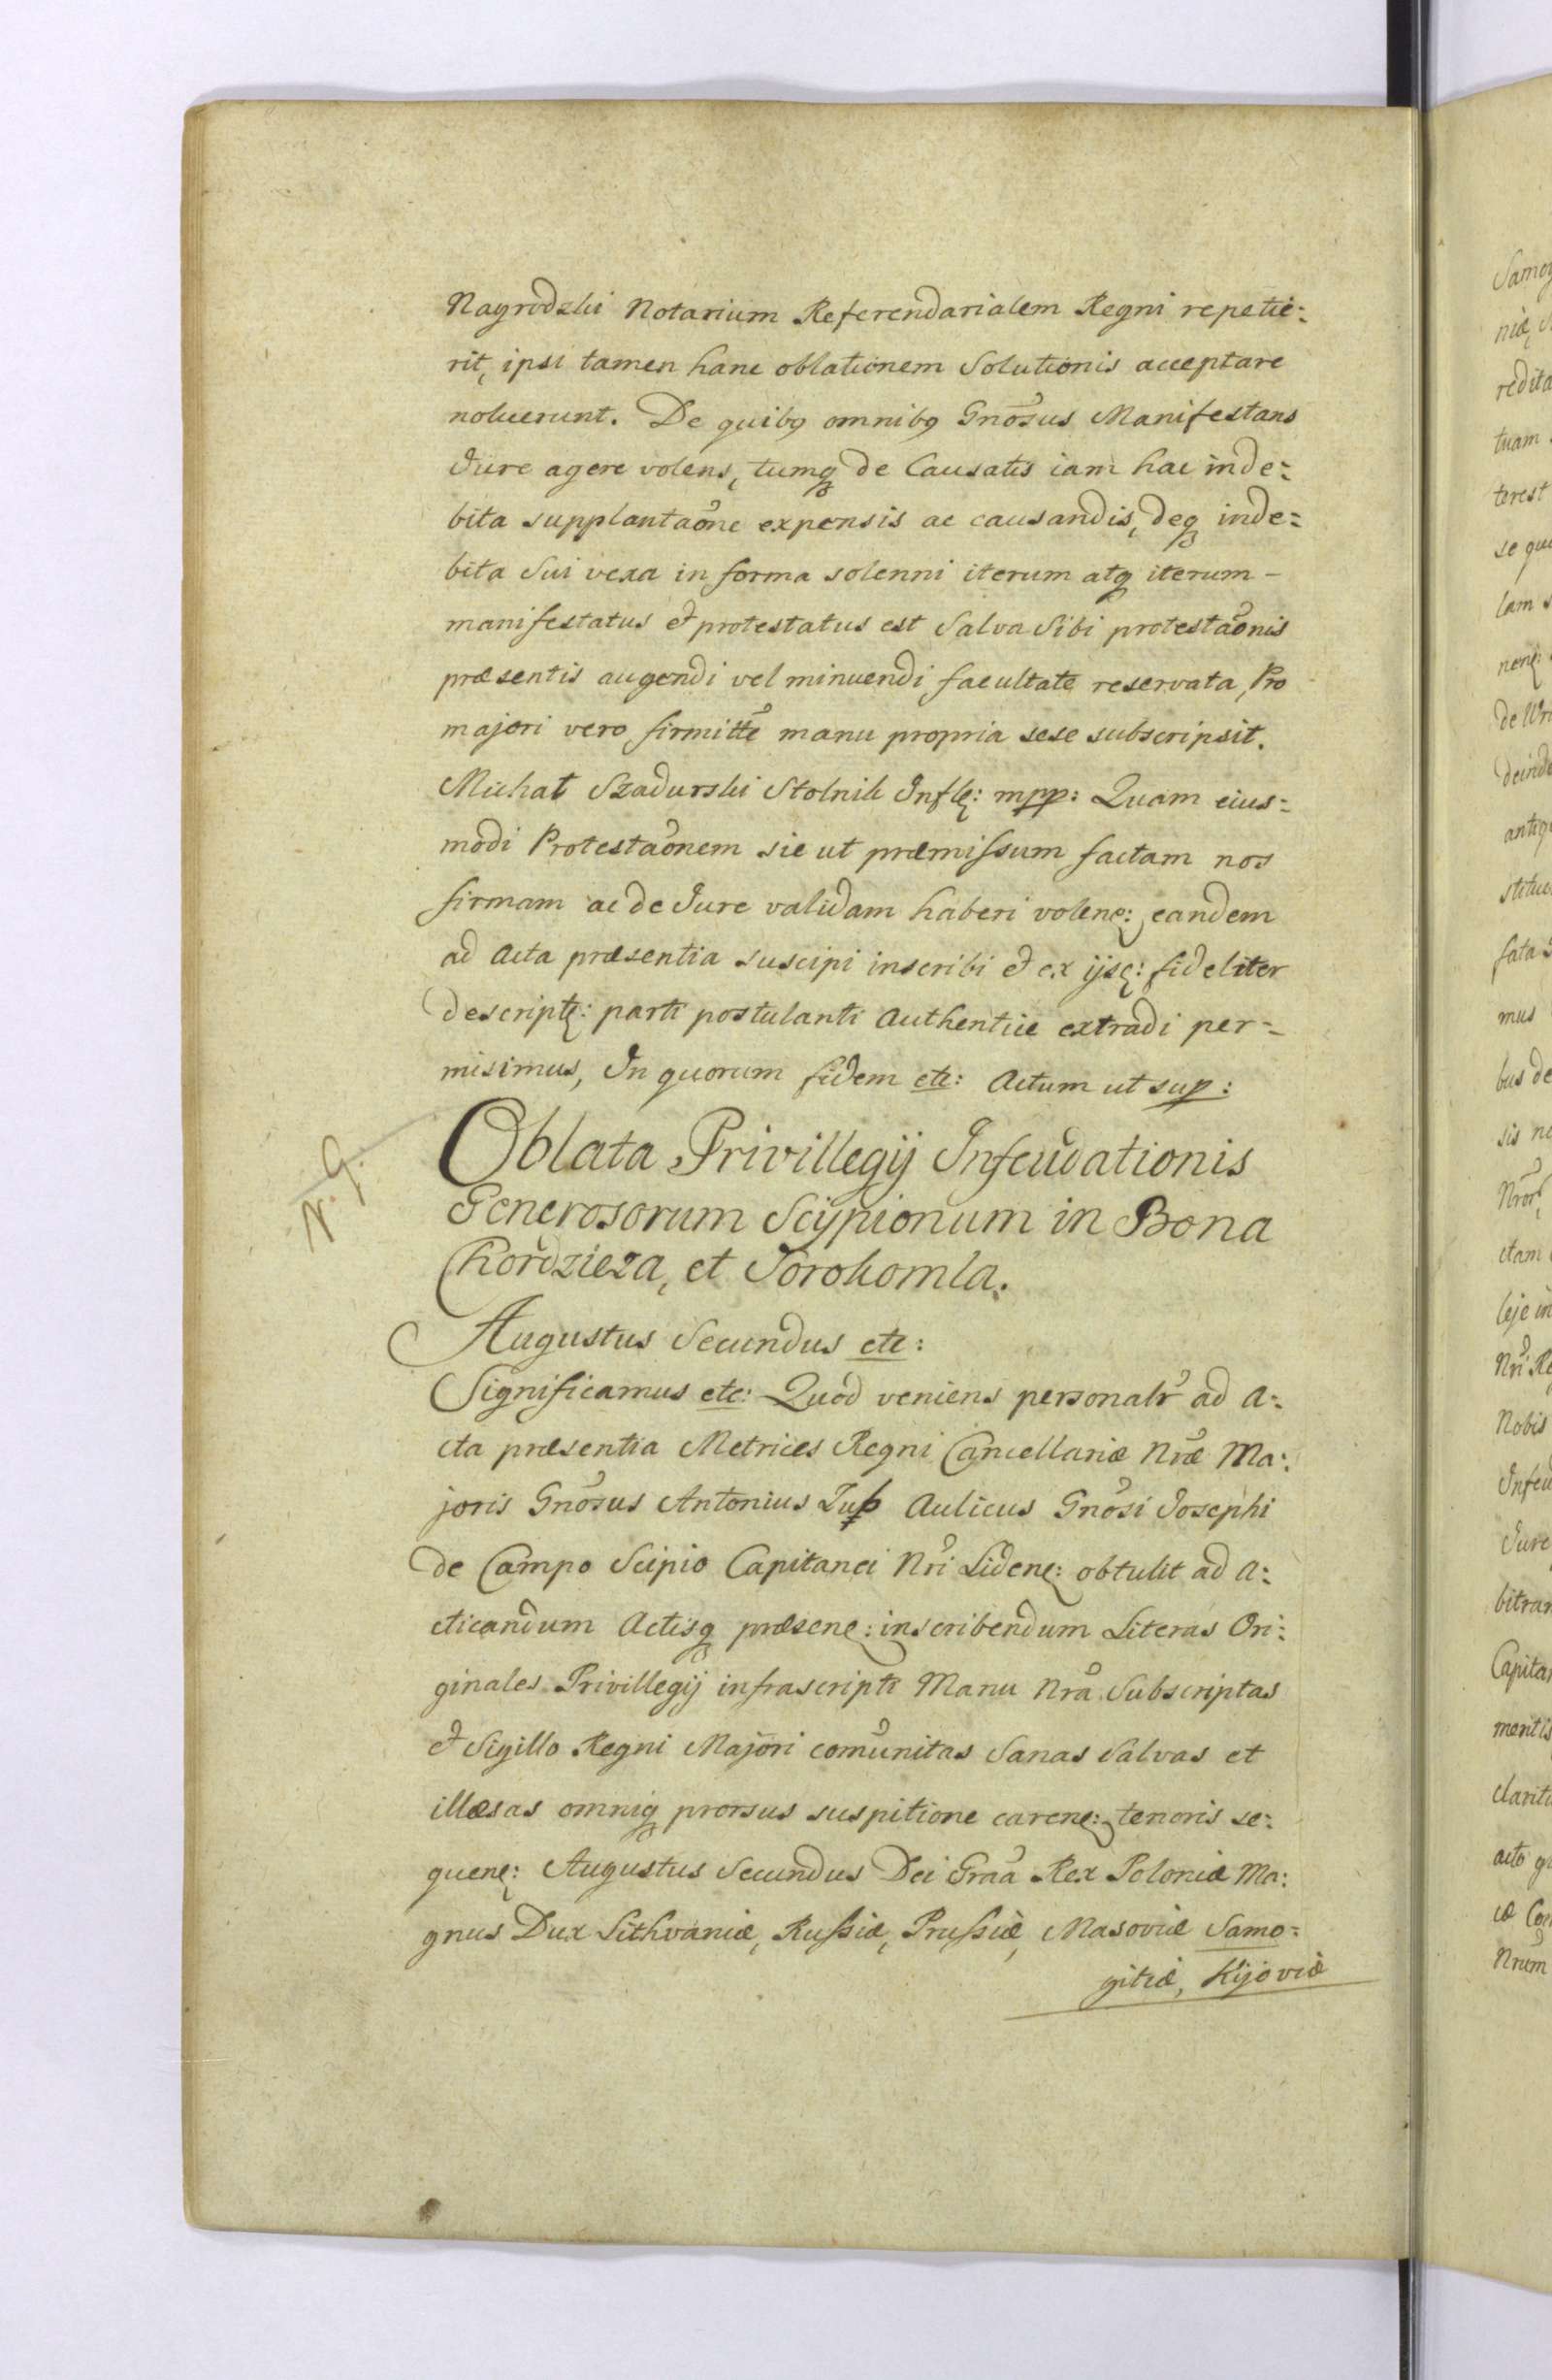 Nagrodzki Notarium Referendarialem Regni repetie:
rit, ipsi tamen hanc oblationem Solutionis acceptare
noluerunt. De quibꝫ omnibꝫ Gnõsus Manifestans
Jure agere volens, tumqꝫ de Causatis iam hac inde:
bita supplantaõne expensis ac causandis, deqꝫ inde:
bita Sui vexa in forma solenni iterum atqꝫ iterum -
manifestatus et protestatus est Salva Sibi protestaõnis
præsentis augendi vel minuendi facultate reservata, Pro
majori vero firmitte manu propria sese subscripsit.
Michał Szadurski Stolnik Inflę: mpp: Quam eius:
modi Protestaõnem sic ut præmissum factam nos
firmam ac de Jure validam haberi volenę: eandem
ad Acta præsentia suscipi inscribi et ex ijsę: fideliter
descriptę: parti postulanti Authentice extradi per:
misimus, In quorum fidem etc: Actum ut sup:
N. 9.
Oblata Privillegij Infeudationis
Generosorum Scypionum in Bona
Chordzieza, et Sorokomla.
Augustus Secundus etc:
Significamus etc: Quod veniens personalr ad A:
cta præsentia Metrices Regni Cancellariæ Nræ Ma:
joris Gnõsus Antonius Aulicus Gnõsi Josephi
de Campo Scipio Capitanei Nri Lidenę: obtulit ad A:
cticandum Actisqꝫ præsenę: inscribendum Literas Ori:
ginales Privillegij infrascripti Manu Nra Subscriptas
et Sigillo Regni Majori comunitas Sanas Salvas et
illæsas omniqꝫ prorsus suspitione carenę: tenoris se:
quenę: Augustus Secundus Dei Graã Rex Poloniæ Ma:
gnus Dux Lithvaniæ, Russiæ, Prussiæ, Masoviæ Samo:
gitiæ, Kijoviæ